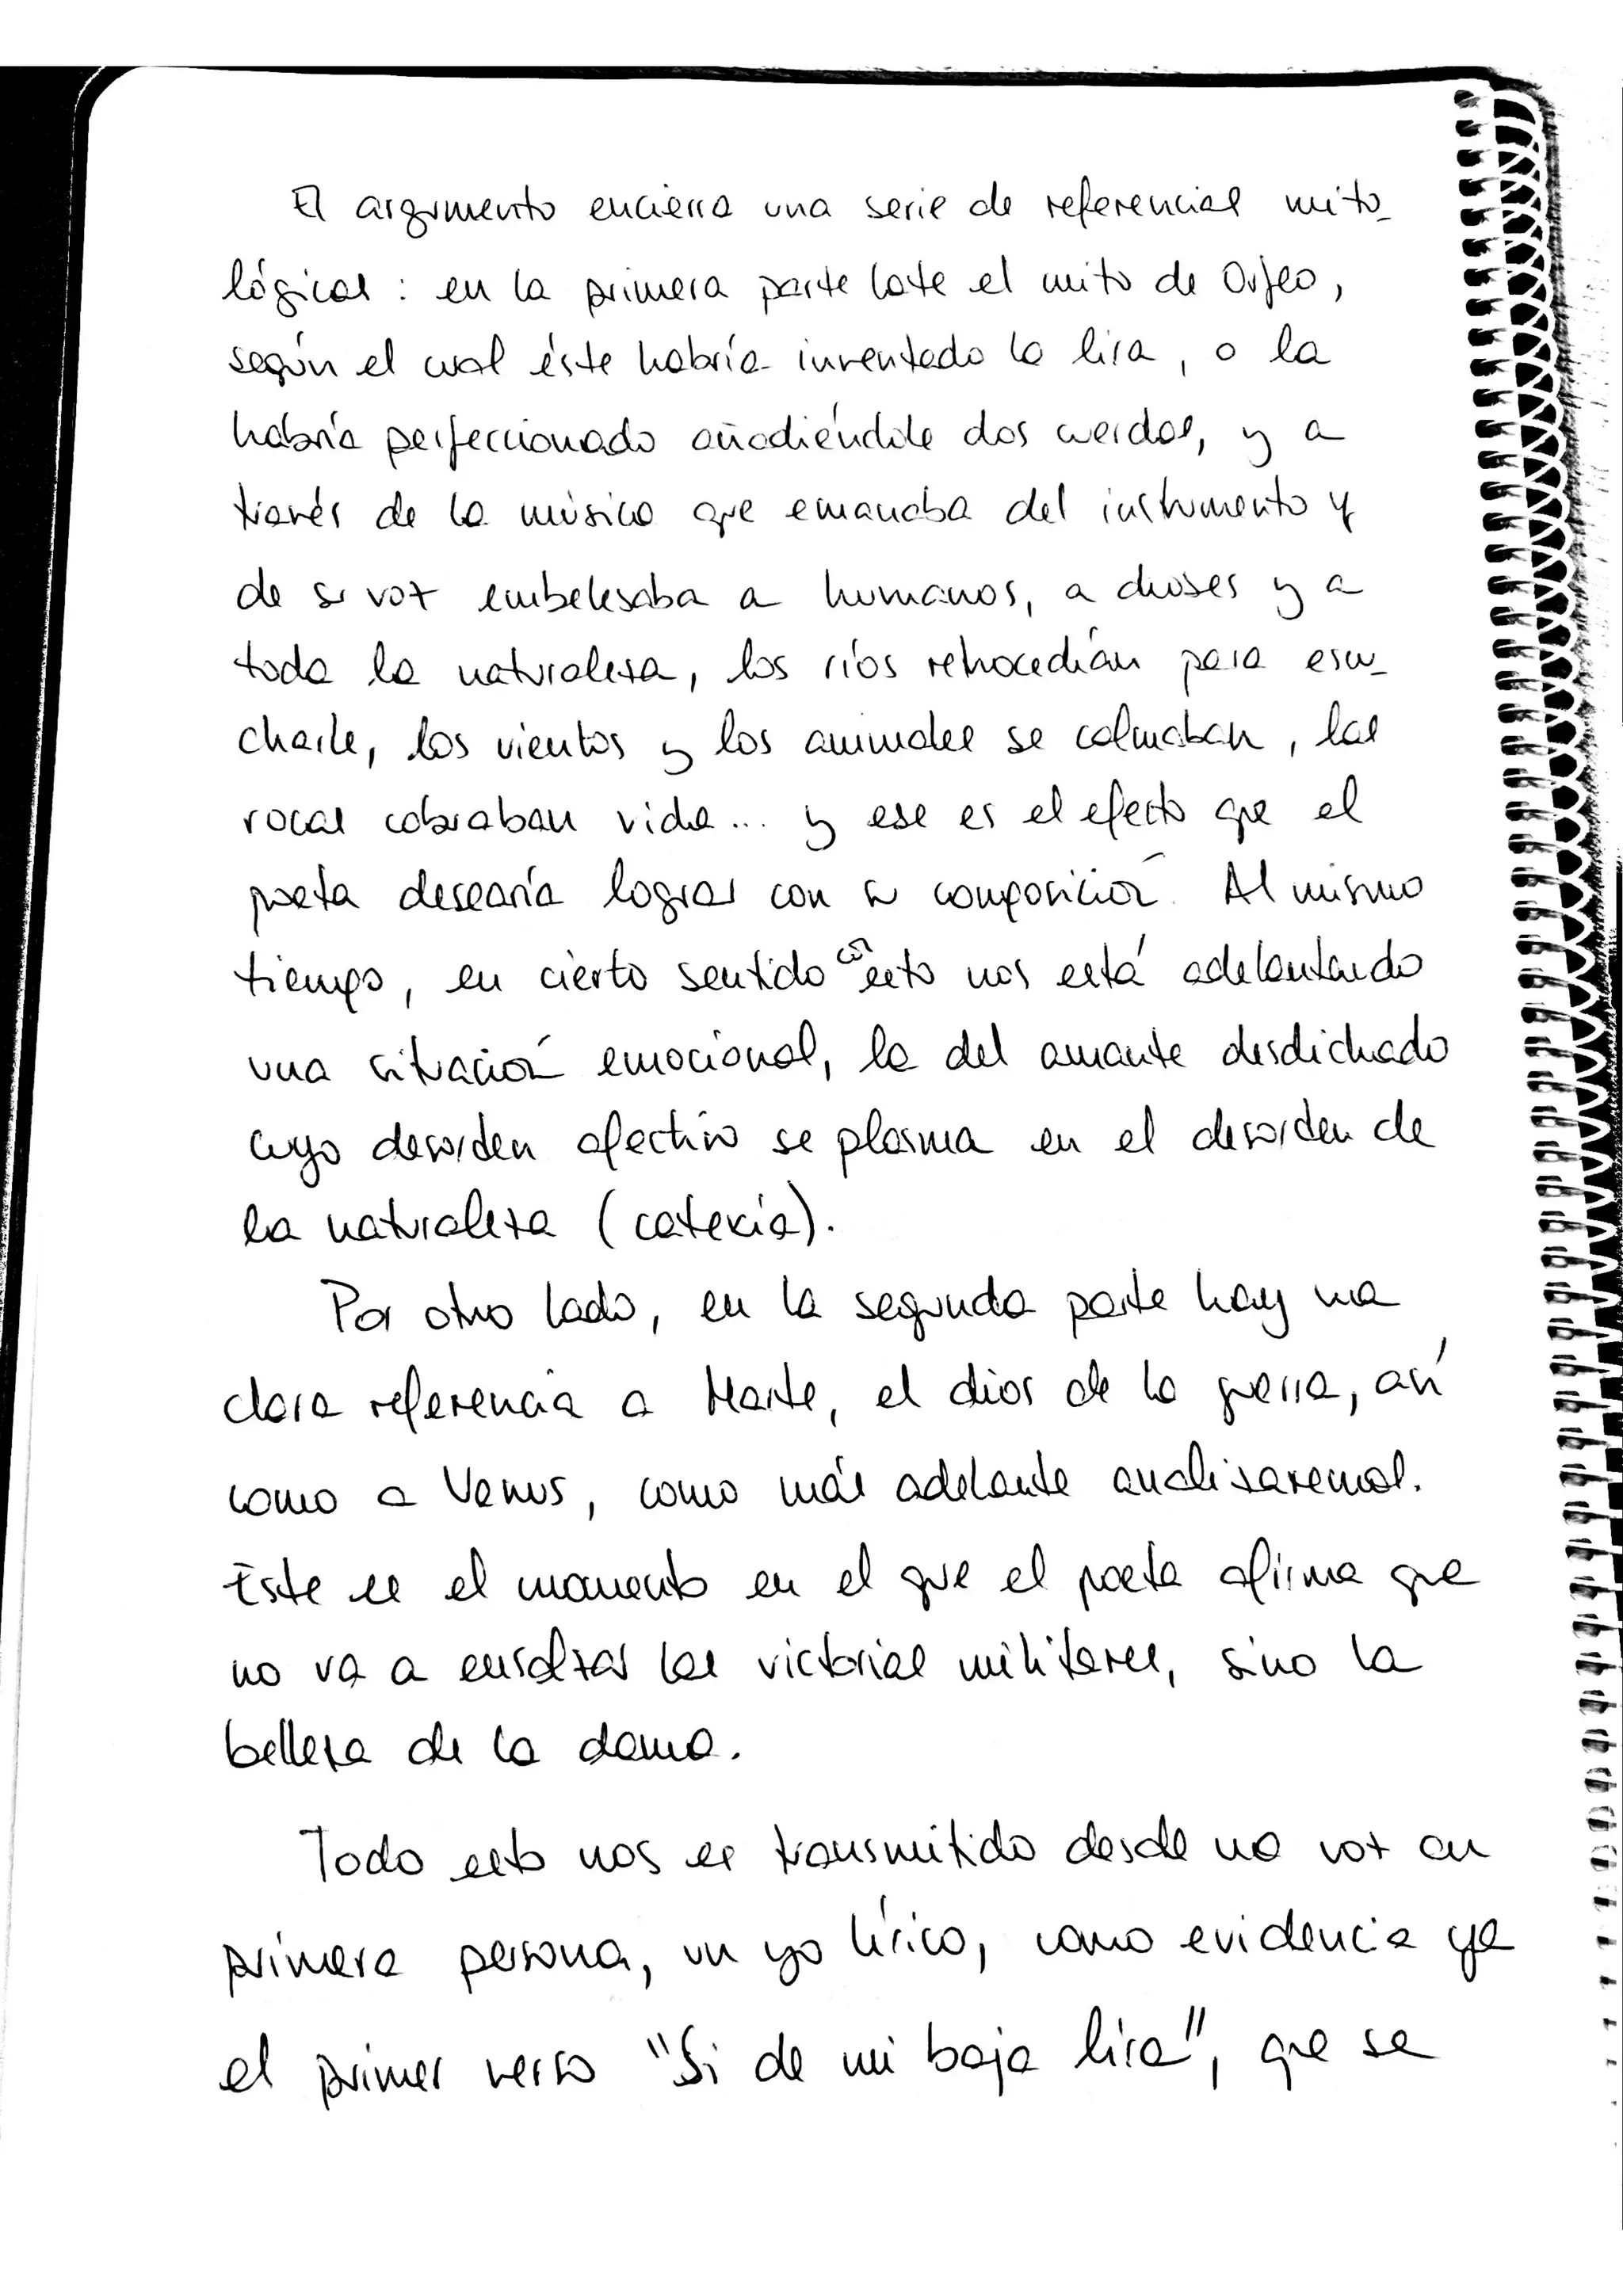 El argumento encierra una serie de referencias mito-
lógicas: en la primera parte late el mito de Orfeo,
según el cual éste habría inventado la lira, o la
habría perfeccionado añadiéndole dos cuerdas, y a
través de la música que emanaba del instrumento y
de su voz embelesaba a humanos, a dioses y a
toda la naturaleza, los ríos retrocedían para escu-
charle, los vientos y los animales se calmaban, las
rocas cobraban vida... y ese es el efecto que el
poeta desearía lograr con su composición. Al mismo
tiempo, en cierto sentido con esto nos está adelantando
una situación emocional, la del amante desdichado
cuyo desorden afectivo se plasma en el desorden de
la naturaleza (catexia).
Por otro lado, en la segunda parte hay una
clara referencia a Marte, el dios de la guerra, así
como a Venus, como más adelante analizaremos.
Este es el momento en el que el poeta afirma que
no va a ensalzar las victorias militares, sino la
belleza de la dama.
Todo esto nos es transmitido desde una voz en
primera persona, un yo lírico, como evidencia ya
el primer verso "Si de mi baja lira", que se